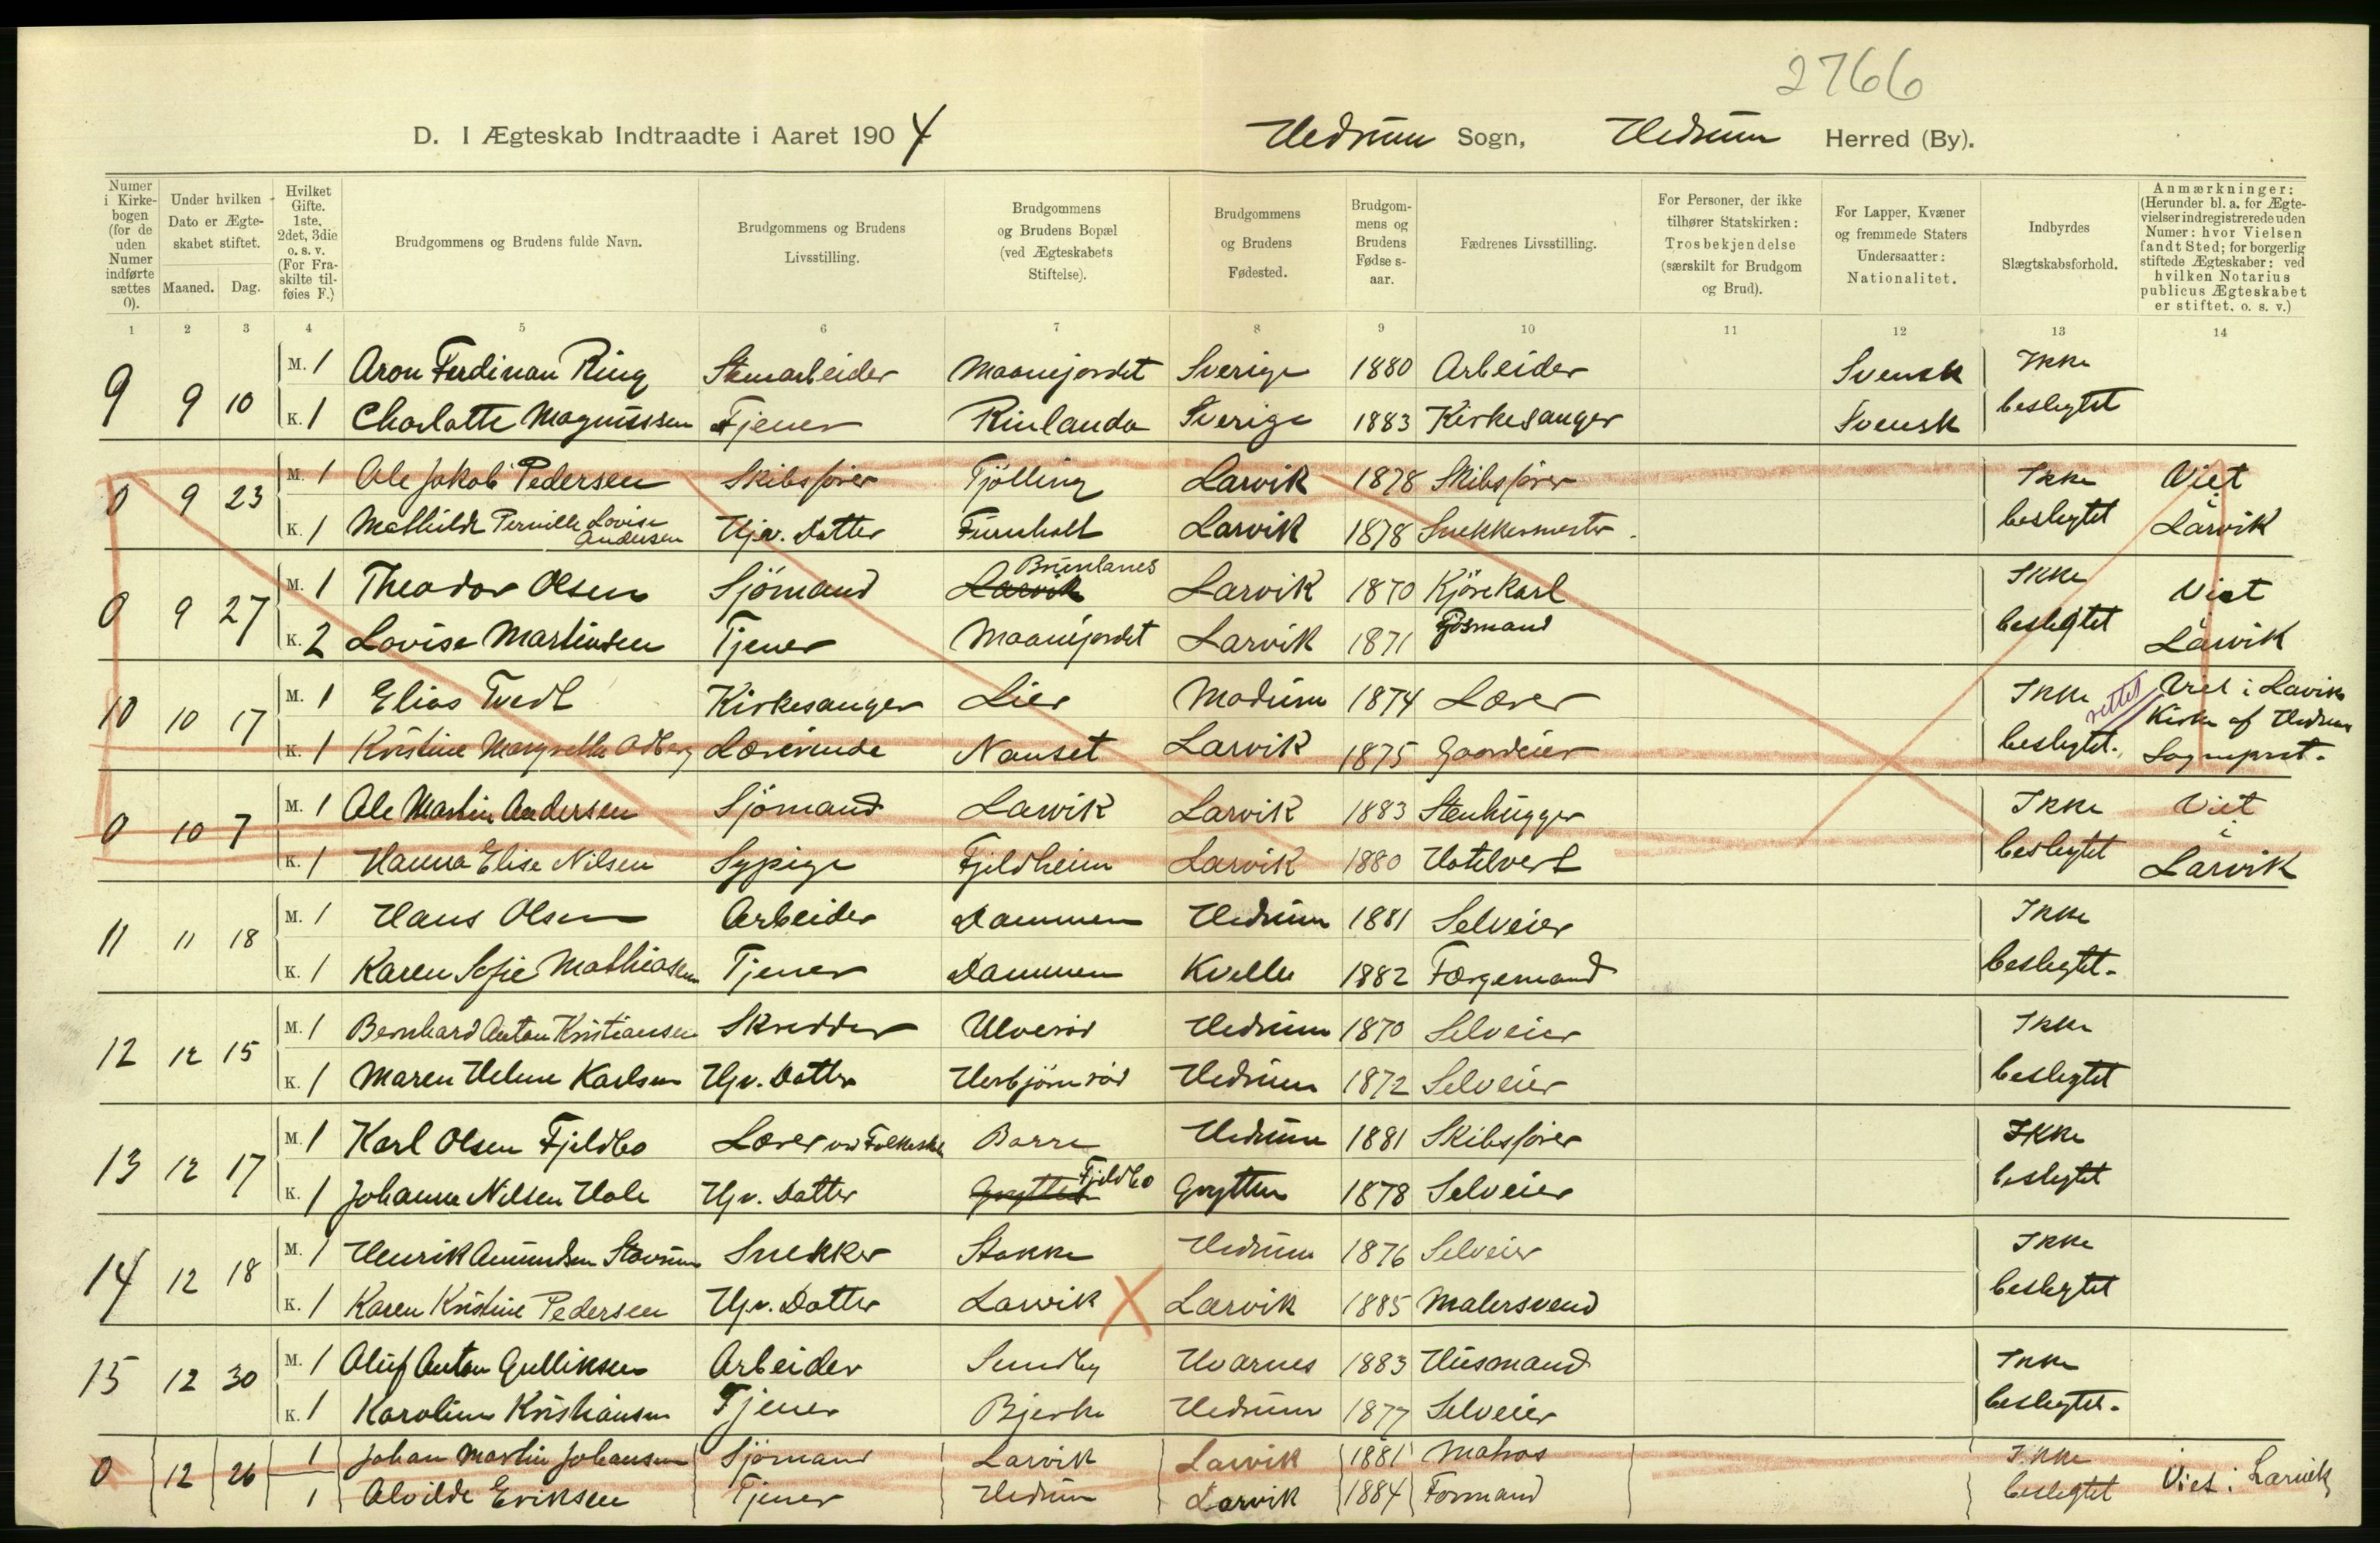 2766
D. I Ægteskab Indtraadte i Aaret 1904 Hedrum Sogn, Hedrum Herred (By).
Numer i Kirkebogen (for de uden Numer indførte sættes 0). Under hvilken Dato er Ægteskabet stiftet. Maaned. Dag. Hvilket Gifte. 1ste, 2det, 3die o. s. v. (For Fraskilte tilføies F.) Brudgommens og Brudens fulde Navn. Brudgommens og Brudens Livsstilling. Brudgommens og Brudens Bopæl (ved Ægteskabets Stiftelse). Brudgommens og Brudens Fødested. Brudgommens og Brudens Fødselsaar. Fædrenes Livsstilling. For Personer, der ikke tilhører Statskirken: Trosbekjendelse (særskilt for Brudgom og Brud). For Lapper, Kvæner og fremmede Staters Undersaatter: Nationalitet. Indbyrdes Slægtskabsforhold. Anmærkninger: (Herunder bl. a. for Ægtevielser indregistrerede uden Numer: hvor Vielsen fandt Sted; for borgerlig stiftede Ægteskaber: ved hvilken Notarius publicus Ægteskabet er stiftet. o. s. v.)
1 2 3 4 5 6 7 8 9 10 11 12 13 14
9 9 10 M. 1 Aron Ferdinan Ring Stenarbeider Maanejordet Sverige 1880 Arbeider Svensk Ikke
K. 1 Charlotte Magnussen Tjener Rinlanda Sverige 1883 Kirkesanger Svensk beslegtet
0 9 23 M. 1 Ole Jakob Pedersen Skibsfører Tjölling Larvik 1878 Skibsfører Ikke Viet
K. 1 Mathilde Pernille Lovise Andersen Hjv. Datter Furuholt Larvik 1878 Snekkermester beslegtet i Larvik
0 9 27 M. 1 Theodor Olsen Sjömand Larvik Brunlanes Larvik 1870 Kjörekarl Ikke Viet
K. 2 Lovise Martinsen Tjener Maanejordet Larvik 1871 Fjösmand beslegtet i Larvik
10 10 17 M. 1 Elias Tvedt Kirkesanger Lier Modum 1874 Lærer Ikke rettet Viet i Larvik
K. 1 Kristine Margrethe Odberg Lærerinde Nanset Larvik 1875 Gaardeier beslegtet. Kirke af Hedrum Sogneprest.
0 10 7 M. 1 Ole Martin Andersen Sjömand Larvik Larvik 1883 Stenhugger Ikke Viet
K. 1 Hanna Elise Nilsen Sypige Fjeldheim Larvik 1880 Hotelvert beslegtet i Larvik
11 11 18 M. 1 Hans Olsen Arbeider Dammen Hedrum 1881 Selveier Ikke
K. 1 Karen Sofie Mathiasen Tjener Dammen Kvelle 1882 Færgemand beslegtet.
12 12 15 M. 1 Bernhard Anton Kristiansen Skredder Ulveröd Hedrum 1870 Selveier Ikke
K. 1 Maren Helene Karlsen Hjv. Datter Herbjörnröd Hedrum 1872 Selveier beslegtet
13 12 17 M. 1 Karl Olsen Fjeldbo Lærer ved Folkeskole Borre Hedrum 1881 Skibsfører Ikke
K. 1 Johanne Nilsen Hole Hjv. Datter Grytten Fjeldbo Grytten 1878 Selveier beslegtet
14 12 18 M. 1 Henrik Amundsen Stavrum Snekker Stokke Hedrum 1876 Selveier Ikke
K. 1 Karen Kristine Pedersen Hjv. Datter Larvik X Larvik 1885 Malersvend beslegtet
15 12 30 M. 1 Oluf Anton Gulliksen Arbeider Sundby Hvarnes 1883 Husmand Ikke
K. 1 Karoline Kristiansen Tjener Bjerke Hedrum 1877 Selveier beslegtet.
0 12 26 1 Johan Martin Johansen Sjömand Larvik Larvik 1881 Matros Ikke
1 Alvilde Eriksen Tjener Hedrum Larvik 1884 Formand beslegtet Viet i Larvik